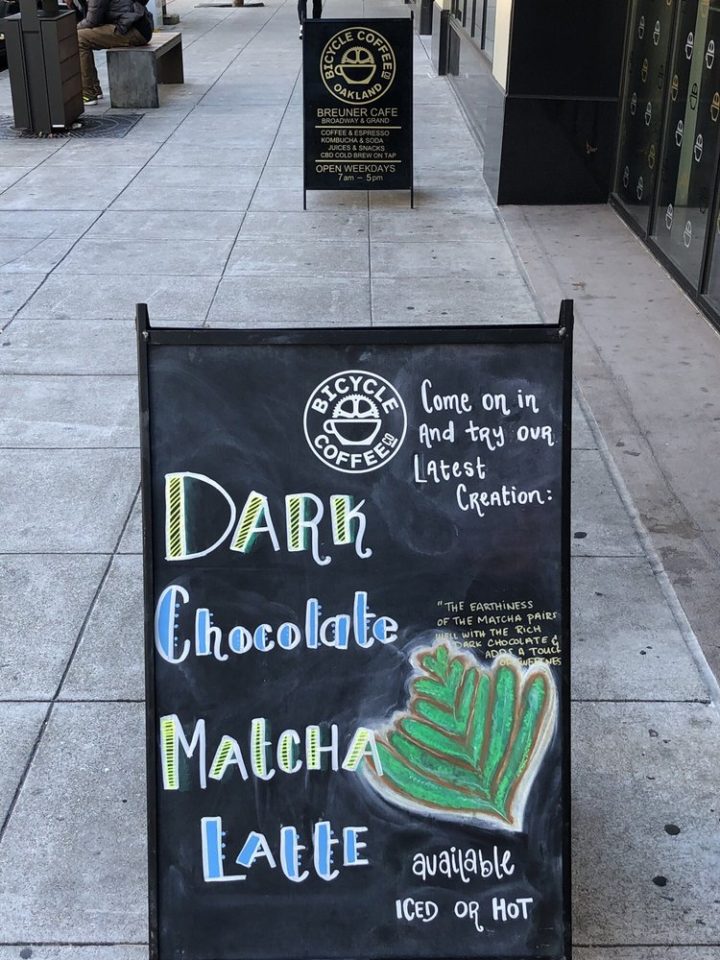 BICYCLE COFFEE CO
OAKLAND
BREUNER CAFE
BROADWAY & GRAND
COFFEE & ESPRESSO
KOMBUCHA & SODA
JUICES & SNACKS
CBD COLD BREW ON TAP
OPEN WEEKDAYS
7am – 5pm
BICYCLE
COFFEE CO
Come on in
And try our
Latest
Creation:
DARK
Chocolate
"THE EARTHINESS
OF THE MATCHA PAIRS
WELL WITH THE RICH
DARK CHOCOLATE &
ADDS A TOUCH
OF
MATCHA
LATTE
available
ICED OR HOT